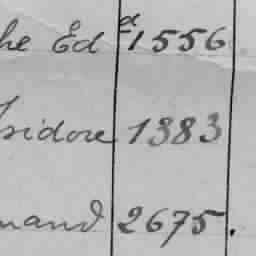 he Ed d 1556
sidore 1383
mand 2675.